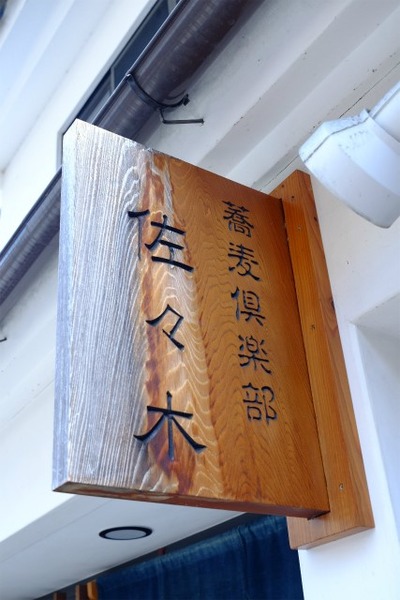 蕎麦倶楽部
佐々木